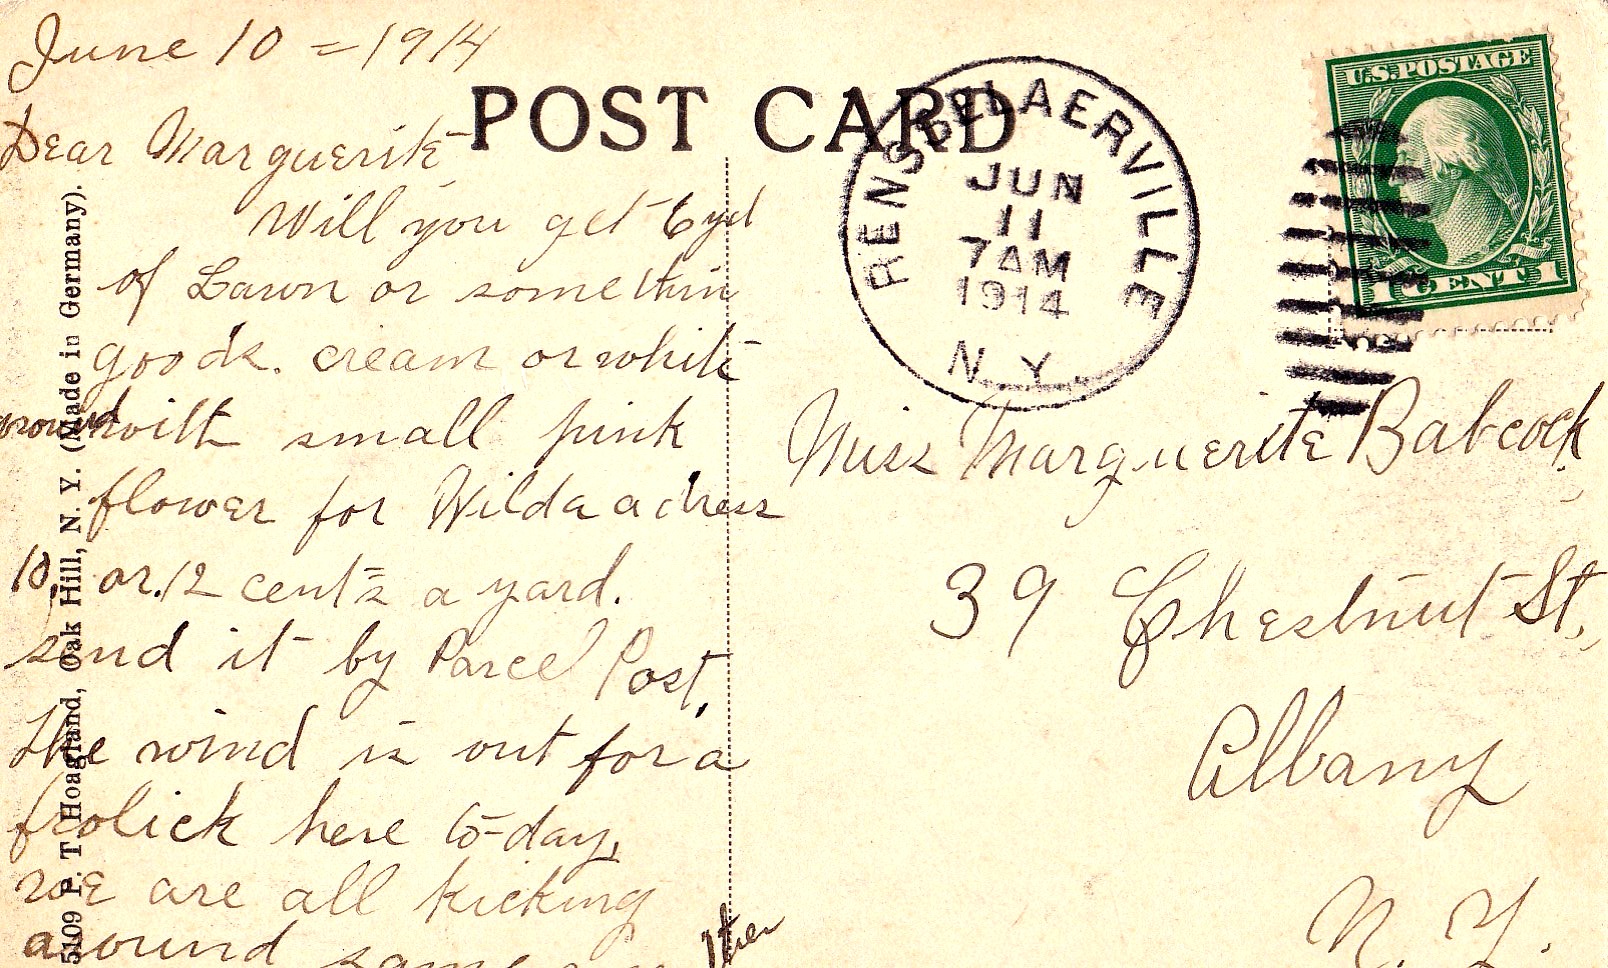 June 10 = 1914
POST CARD
Dear Marguerite
Will you get 6 yd
of Lawn or some thin
goods. cream or white
ground with small pink
flower for Wilda a dress
10, or .12 cents a yard.
send it by Parcel Post,
the wind is out for a
frolick here to-day,
we are all kicking
around same
Ither
5109 P. T. Hoagland, Oak Hill, N. Y. (Made in Germany).
RENSSELAERVILLE
JUN
11
7 AM
1914
N. Y.
U.S. POSTAGE
1 CENT 1
Miss Marguerite Babcock,
39 Chestnut St,
Albany
N. Y.